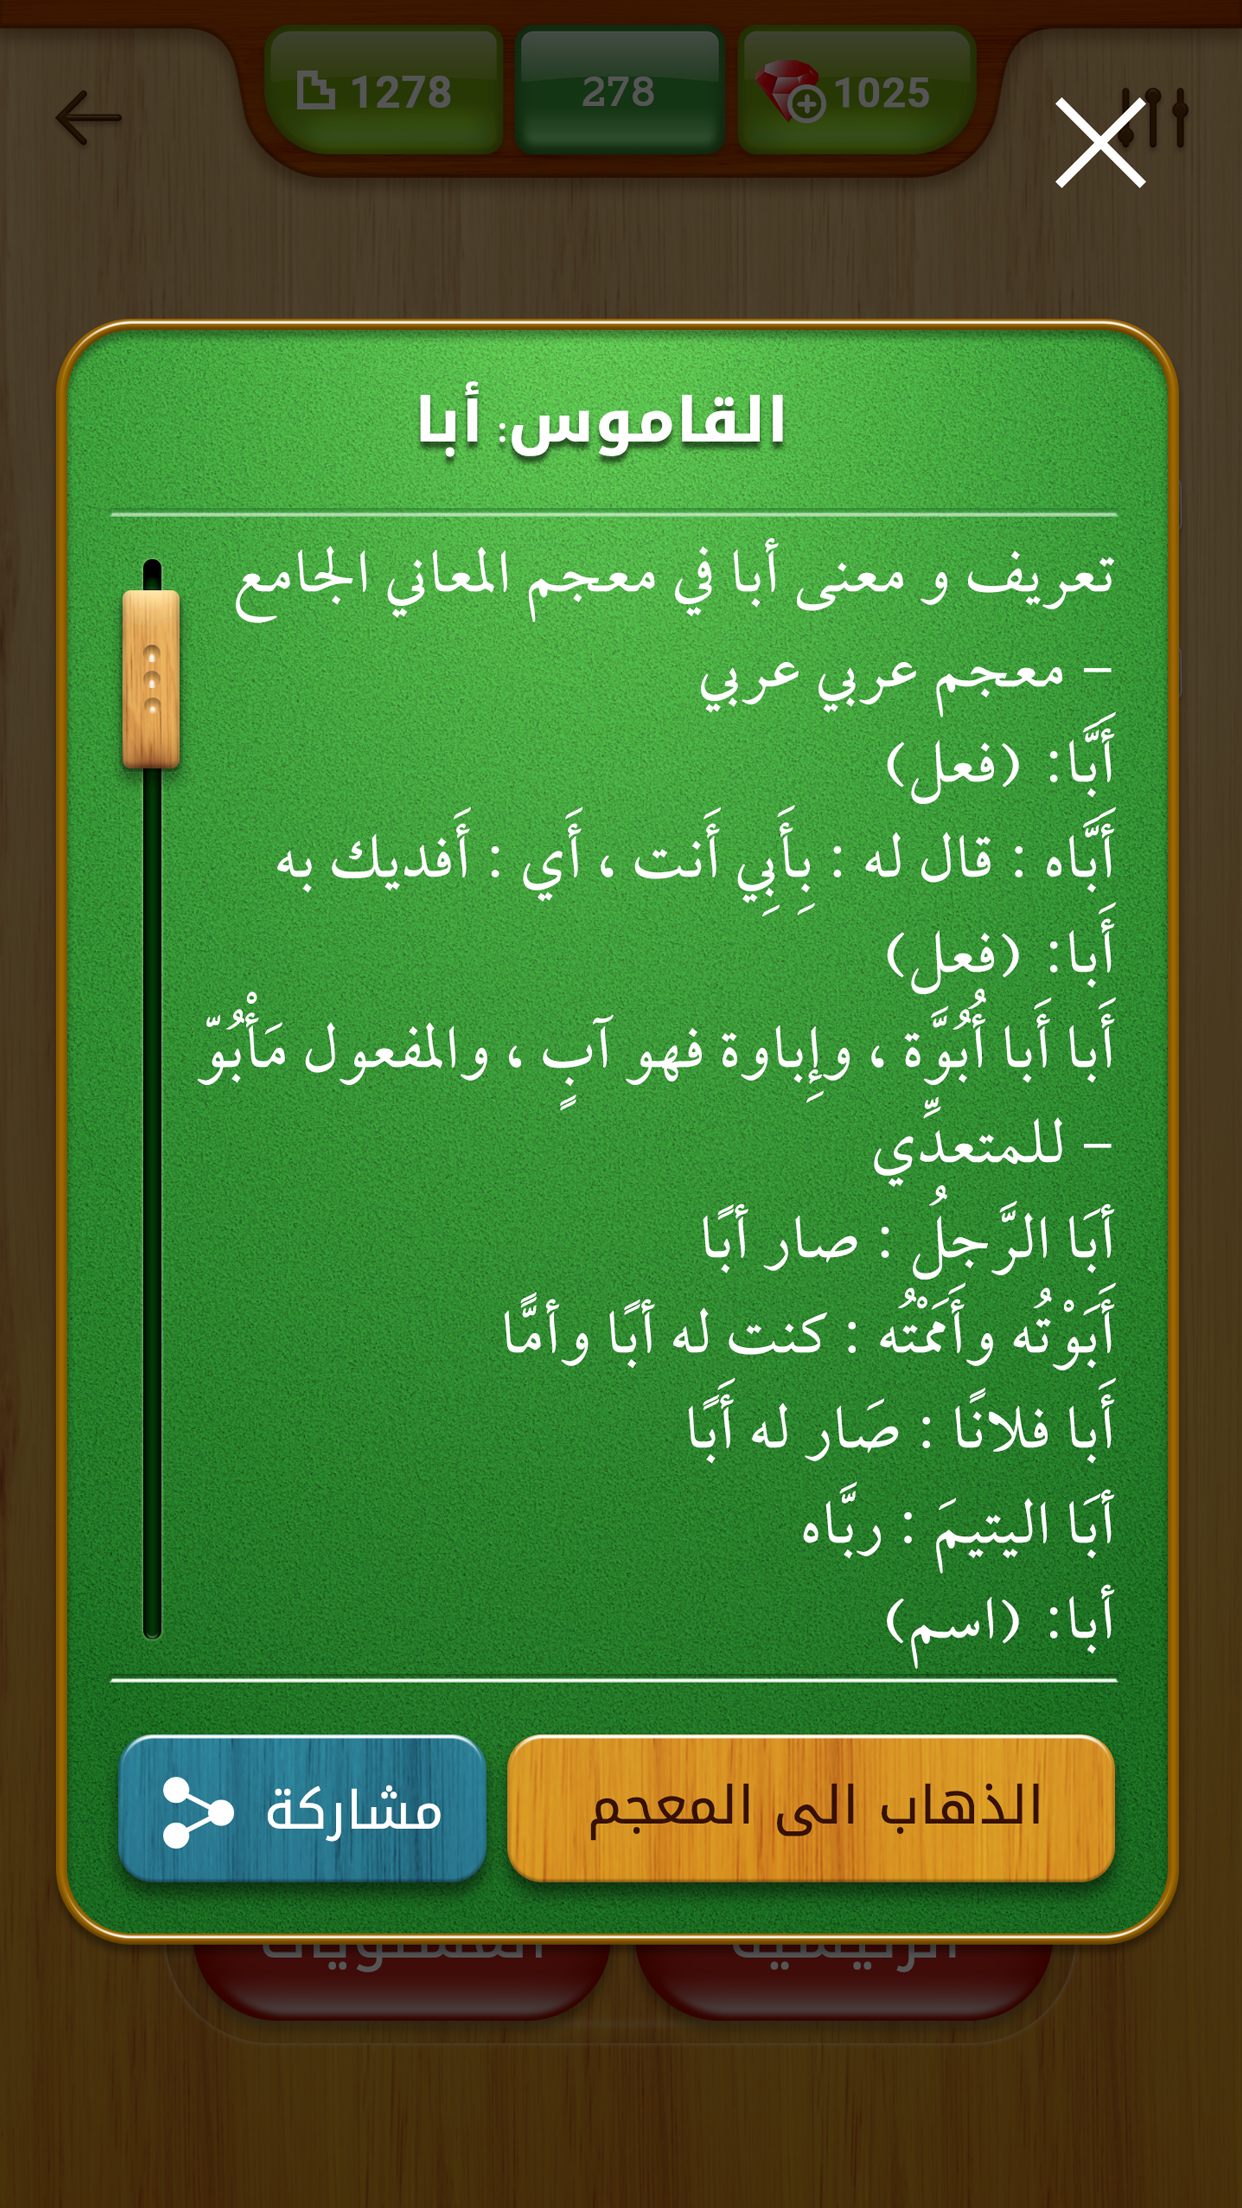 1278
278
1025
القاموس: أبا
تعريف و معنى أبا في معجم المعاني الجامع
- معجم عربي عربي
أَبَّا: (فعل)
أَبَّاه : قال له : بِأَبِي أَنت ، أَي : أَفديك به
أَبا: (فعل)
أَبا أَبا أُبُوَّة ، وإِباوة فهو آبٍ ، والمفعول مَأْبُوّ
- للمتعدِّي
أبَا الرَّجلُ : صار أبًا
أَبَوْتُه وأَمَمْتُه : كنت له أبًا وأمًّا
أَبا فلانًا : صَار له أَبًا
أبَا اليتيمَ : ربَّاه
أبا: (اسم)
الذهاب الى المعجم
مشاركة
الرئيسية
المستويات